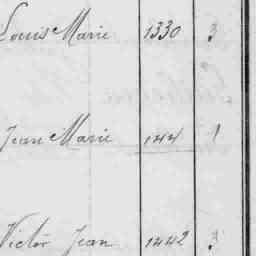 Louis Marie 1330 3
Jean Marie 144 1
Victor Jean 1442 3